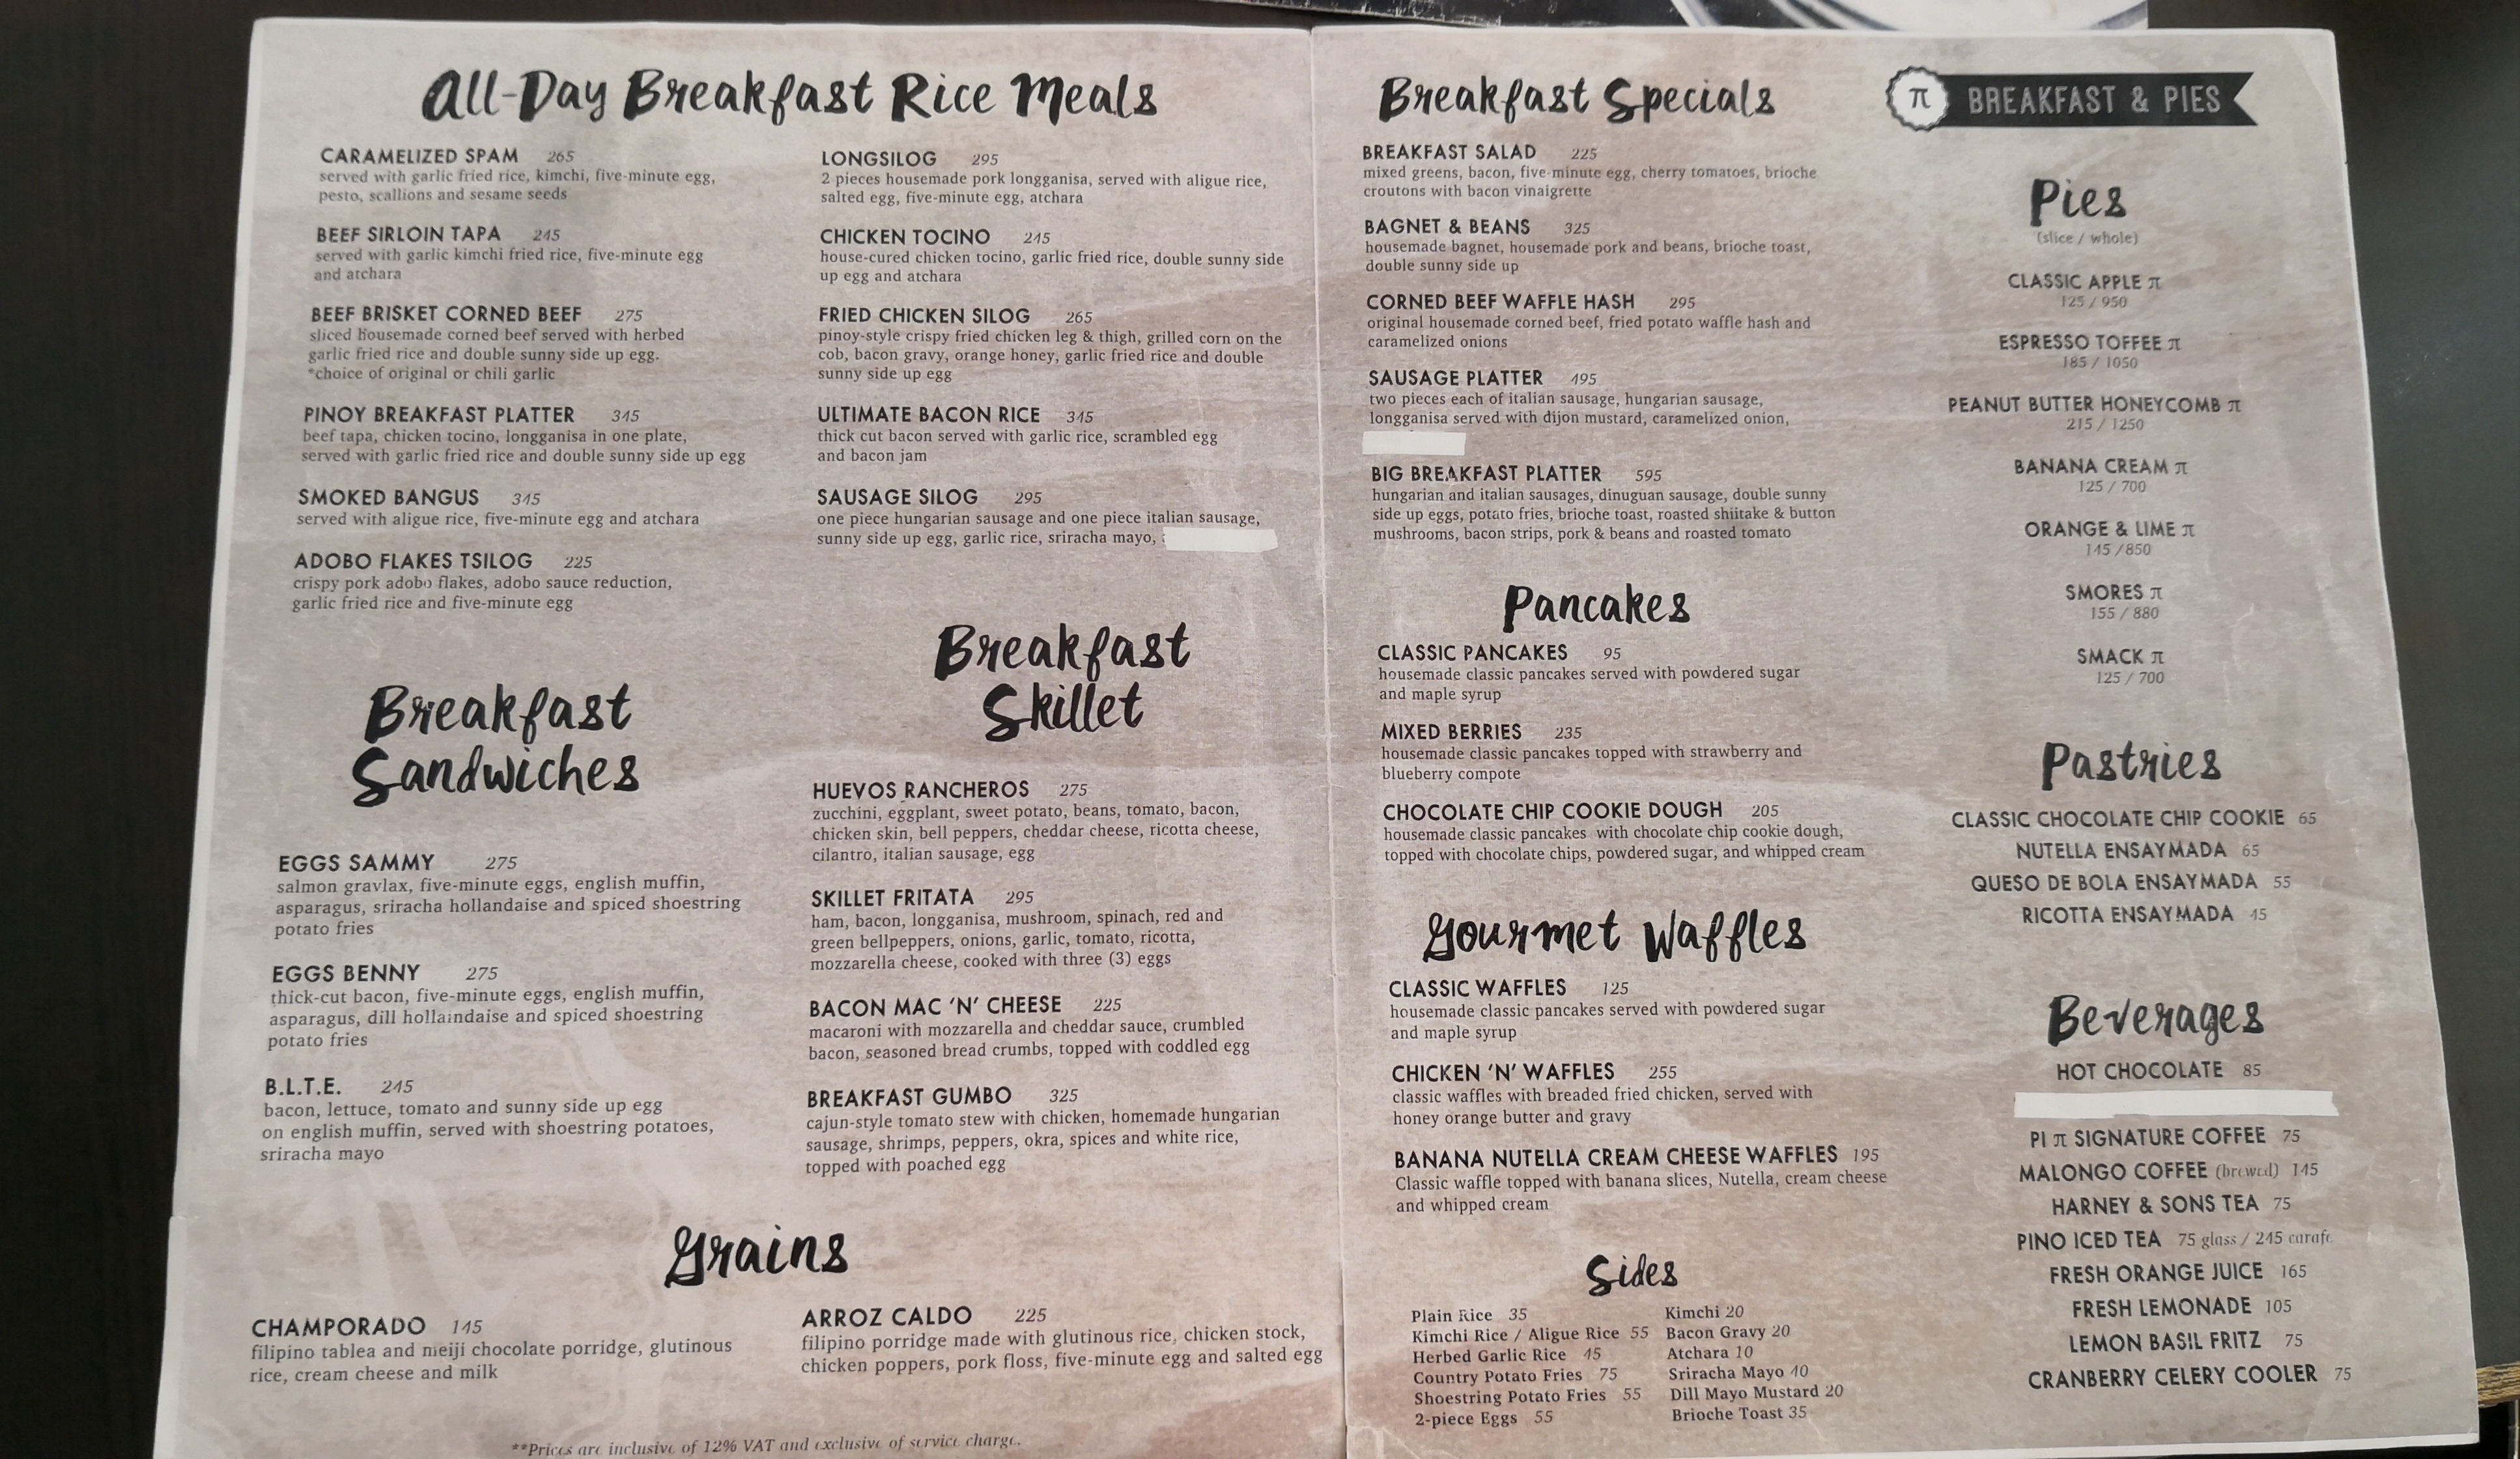 All-Day Breakfast Rice Meals
CARAMELIZED SPAM 265
served with garlic fried rice, kimchi, five-minute egg,
pesto, scallions and sesame seeds
BEEF SIRLOIN TAPA 245
served with garlic kimchi fried rice, five-minute egg
and atchara
BEEF BRISKET CORNED BEEF 275
sliced housemade corned beef served with herbed
garlic fried rice and double sunny side up egg.
*choice of original or chili garlic
PINOY BREAKFAST PLATTER 345
beef tapa, chicken tocino, longganisa in one plate,
served with garlic fried rice and double sunny side up egg
SMOKED BANGUS 345
served with aligue rice, five-minute egg and atchara
ADOBO FLAKES TSILOG 225
crispy pork adobo flakes, adobo sauce reduction,
garlic fried rice and five-minute egg
LONGSILOG 295
2 pieces housemade pork longganisa, served with aligue rice,
salted egg, five-minute egg, atchara
CHICKEN TOCINO 245
house-cured chicken tocino, garlic fried rice, double sunny side
up egg and atchara
FRIED CHICKEN SILOG 265
pinoy-style crispy fried chicken leg & thigh, grilled corn on the
cob, bacon gravy, orange honey, garlic fried rice and double
sunny side up egg
ULTIMATE BACON RICE 345
thick cut bacon served with garlic rice, scrambled egg
and bacon jam
SAUSAGE SILOG 295
one piece hungarian sausage and one piece italian sausage,
sunny side up egg, garlic rice, sriracha mayo,
Breakfast
Sandwiches
EGGS SAMMY 275
salmon gravlax, five-minute eggs, english muffin,
asparagus, sriracha hollandaise and spiced shoestring
potato fries
EGGS BENNY 275
thick-cut bacon, five-minute eggs, english muffin,
asparagus, dill hollaindaise and spiced shoestring
potato fries
B.L.T.E. 245
bacon, lettuce, tomato and sunny side up egg
on english muffin, served with shoestring potatoes,
sriracha mayo
Breakfast
Skillet
HUEVOS RANCHEROS 275
zucchini, eggplant, sweet potato, beans, tomato, bacon,
chicken skin, bell peppers, cheddar cheese, ricotta cheese,
cilantro, italian sausage, egg
SKILLET FRITATA 295
ham, bacon, longganisa, mushroom, spinach, red and
green bellpeppers, onions, garlic, tomato, ricotta,
mozzarella cheese, cooked with three (3) eggs
BACON MAC 'N' CHEESE 225
macaroni with mozzarella and cheddar sauce, crumbled
bacon, seasoned bread crumbs, topped with coddled egg
BREAKFAST GUMBO 325
cajun-style tomato stew with chicken, homemade hungarian
sausage, shrimps, peppers, okra, spices and white rice,
topped with poached egg
Grains
CHAMPORADO 145
filipino tablea and meiji chocolate porridge, glutinous
rice, cream cheese and milk
ARROZ CALDO 225
filipino porridge made with glutinous rice, chicken stock,
chicken poppers, pork floss, five-minute egg and salted egg
**Prices are inclusive of 12% VAT and exclusive of service charge.
Breakfast Specials
BREAKFAST SALAD 225
mixed greens, bacon, five-minute egg, cherry tomatoes, brioche
croutons with bacon vinaigrette
BAGNET & BEANS 325
housemade bagnet, housemade pork and beans, brioche toast,
double sunny side up
CORNED BEEF WAFFLE HASH 295
original housemade corned beef, fried potato waffle hash and
caramelized onions
SAUSAGE PLATTER 495
two pieces each of italian sausage, hungarian sausage,
longganisa served with dijon mustard, caramelized onion,
BIG BREAKFAST PLATTER 595
hungarian and italian sausages, dinuguan sausage, double sunny
side up eggs, potato fries, brioche toast, roasted shiitake & button
mushrooms, bacon strips, pork & beans and roasted tomato
Pancakes
CLASSIC PANCAKES 95
housemade classic pancakes served with powdered sugar
and maple syrup
MIXED BERRIES 235
housemade classic pancakes topped with strawberry and
blueberry compote
CHOCOLATE CHIP COOKIE DOUGH 205
housemade classic pancakes with chocolate chip cookie dough,
topped with chocolate chips, powdered sugar, and whipped cream
Gourmet Waffles
CLASSIC WAFFLES 125
housemade classic pancakes served with powdered sugar
and maple syrup
CHICKEN 'N' WAFFLES 255
classic waffles with breaded fried chicken, served with
honey orange butter and gravy
BANANA NUTELLA CREAM CHEESE WAFFLES 195
Classic waffle topped with banana slices, Nutella, cream cheese
and whipped cream
Sides
Plain Rice 35
Kimchi Rice / Aligue Rice 55
Herbed Garlic Rice 45
Country Potato Fries 75
Shoestring Potato Fries 55
2-piece Eggs 55
Kimchi 20
Bacon Gravy 20
Atchara 10
Sriracha Mayo 40
Dill Mayo Mustard 20
Brioche Toast 35
π BREAKFAST & PIES
Pies
(slice / whole)
CLASSIC APPLE π
125 / 950
ESPRESSO TOFFEE π
185 / 1050
PEANUT BUTTER HONEYCOMB π
215 / 1250
BANANA CREAM π
125 / 700
ORANGE & LIME π
145 /850
SMORES π
155 / 880
SMACK π
125 / 700
Pastries
CLASSIC CHOCOLATE CHIP COOKIE 65
NUTELLA ENSAYMADA 65
QUESO DE BOLA ENSAYMADA 55
RICOTTA ENSAYMADA 45
Beverages
HOT CHOCOLATE 85
PI π SIGNATURE COFFEE 75
MALONGO COFFEE (brewed) 145
HARNEY & SONS TEA 75
PINO ICED TEA 75 glass / 245 carafe
FRESH ORANGE JUICE 165
FRESH LEMONADE 105
LEMON BASIL FRITZ 75
CRANBERRY CELERY COOLER 75